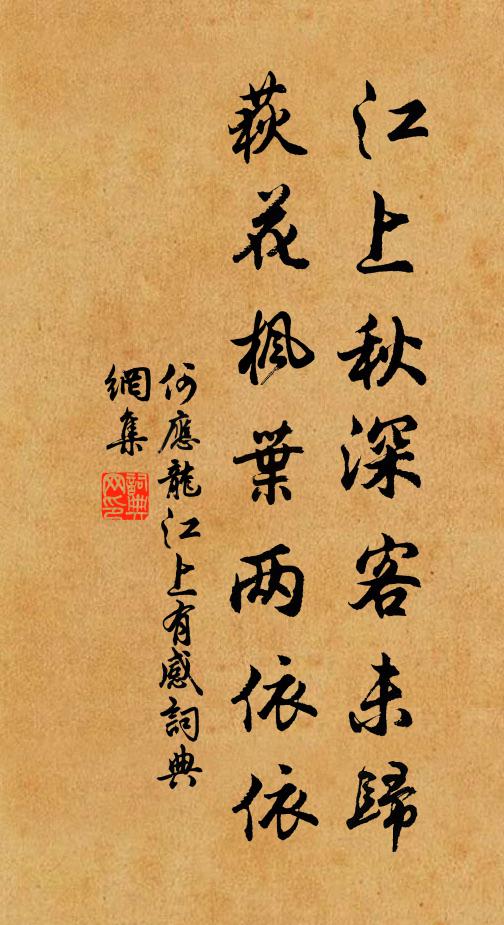 江上秋深客未歸
荻花楓葉两依依
何應龍江上有感詞典
網集
詞典
网印